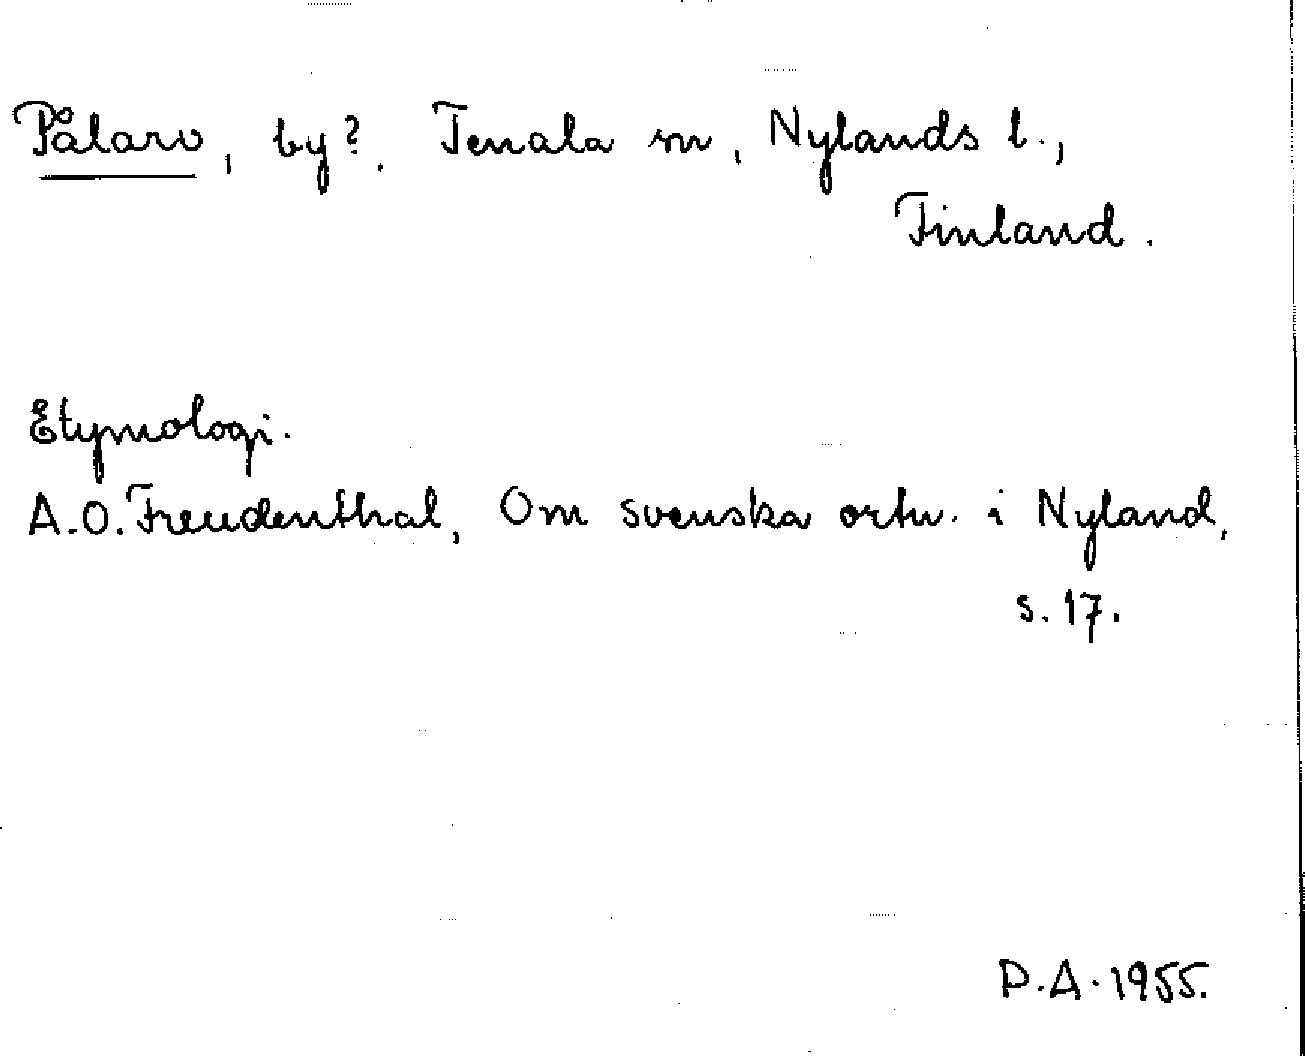 Pålarv, by?. Tenala sn, Nylands l.,
Finland.
Etymologi.
A.O. Freudenthal, Om svenska ortn. i Nyland,
s. 17.
P.A. 1955.